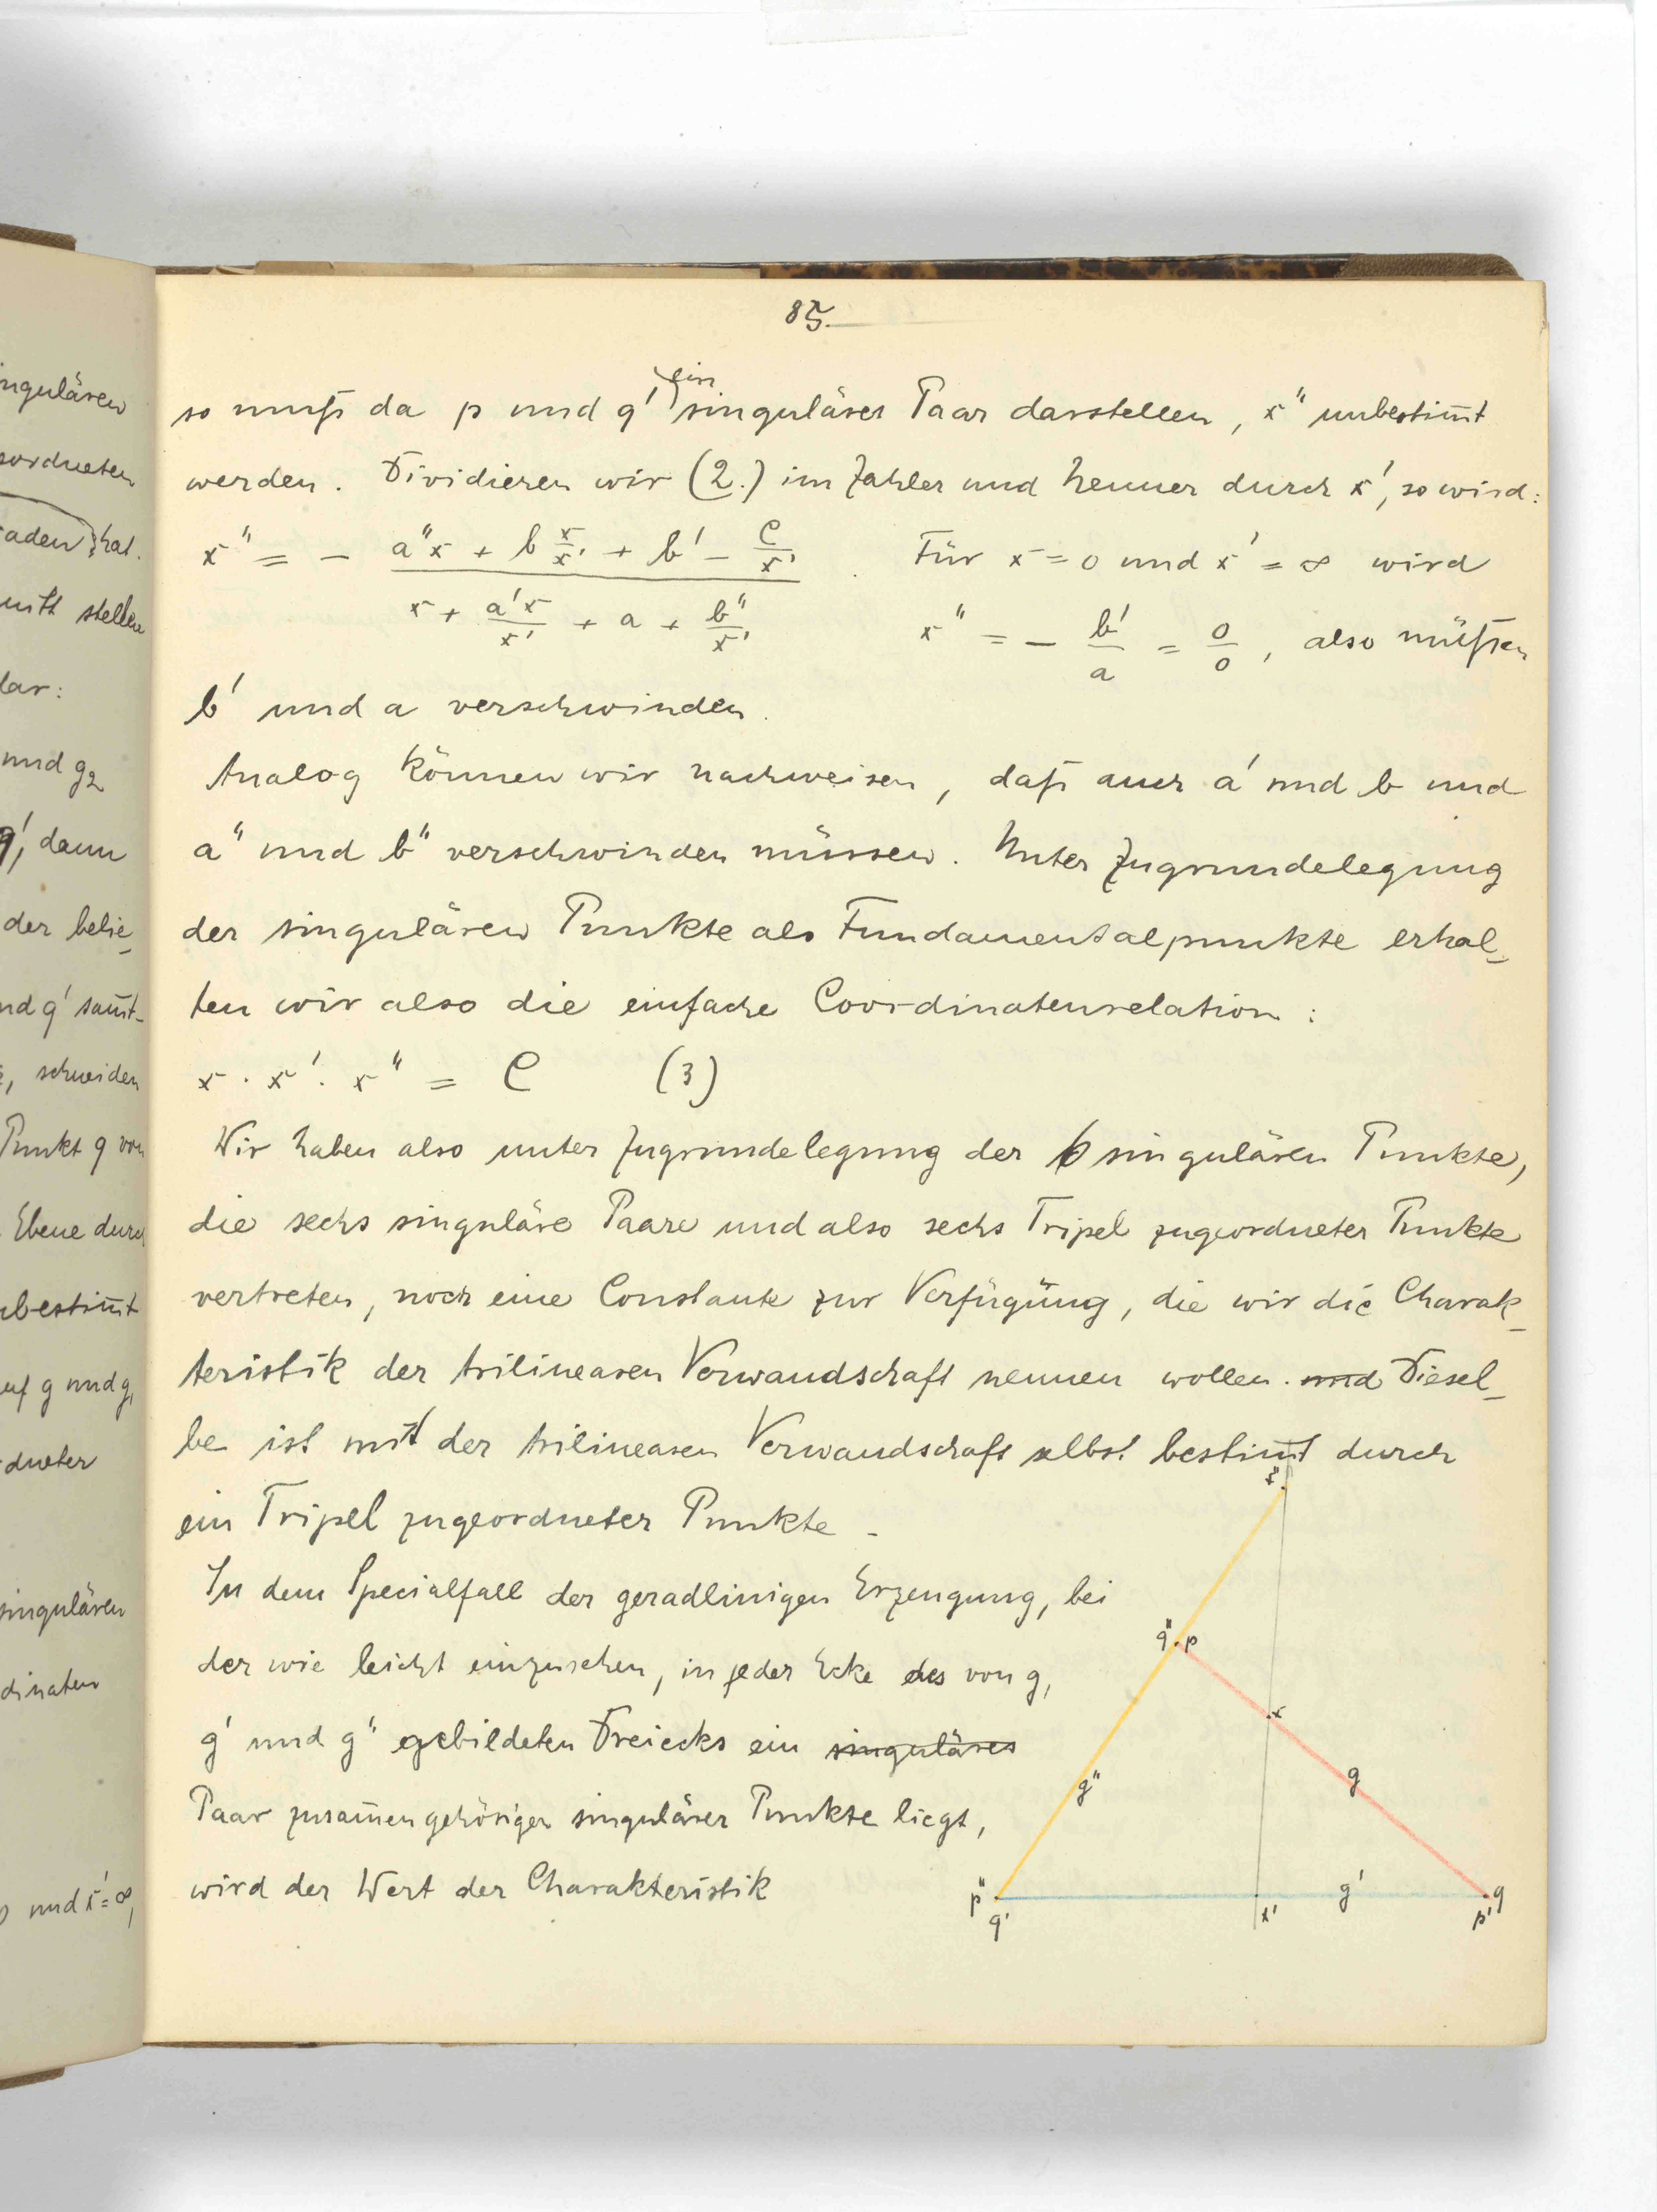 85.
so muß da p und q' ein singuläres Paar darstellen, x" unbestim̅t
werden. Dividieren wir (2.) im Zahler und Nenner durch x', so wird:
x" = - (a"x + b x/x' + b' - C/x') / (x + a'x/x' + a + b"/x') . Für x = 0 und x' = ∞ wird
x" = - b'/a = 0/0, also müßen
b' und a verschwinden.
Analog können wir nachweisen, daß auch a' und b und
a" und b" verschwinden müssen. Unter Zugrundelegung
der singulären Punkte als Fundamentalpunkte erhal-
ten wir also die einfache Coordinatenrelation:
x · x' · x" = C (3)
Wir haben also unter Zugrundelegung der 6 singulären Punkte,
die sechs singuläre Paare und also sechs Tripel zugeordneter Punkte
vertreten, noch eine Constante zur Verfügung, die wir die Charak-
teristik der trilinearen Verwandschaft nennen wollen. und Diesel-
be ist mit der trilinearen Verwandschaft selbst bestim̅t durch
ein Tripel zugeordneter Punkte.
In dem Specialfall der geradlinigen Erzeugung, bei
der wie leicht einzusehen, in jeder Ecke des von g,
g' und g" gebildeten Dreiecks ein singuläres
Paar zusam̅engehöriger singulärer Punkte liegt,
wird der Wert der Charakteristik
x"
q" p
x
g
g"
p" q'
x'
g'
p' q
ngulären
ordneten
aden hat.
nitt stellen
lar:
und g2
q', dann
der belie-
nd q' sam̅t-
, schneiden
Punkt q von
Ebene durch
nbestim̅t
uf g und g,
dneter
singulären
dinaten
und x' = ∞,